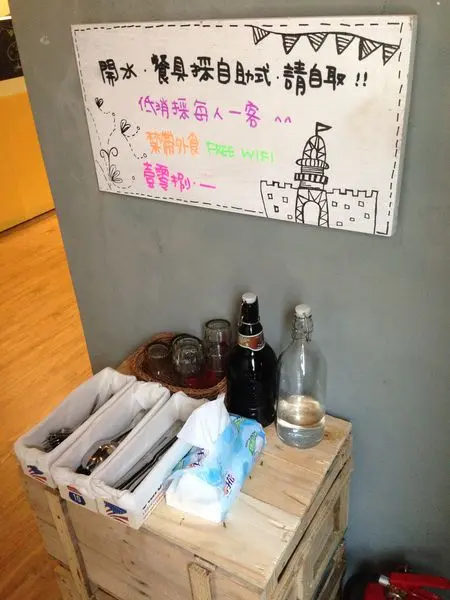 開水．餐具採自助式．請自取!!
低消採每人一客 ^^
禁帶外食 FREE WIFI
壹零捌．一
10